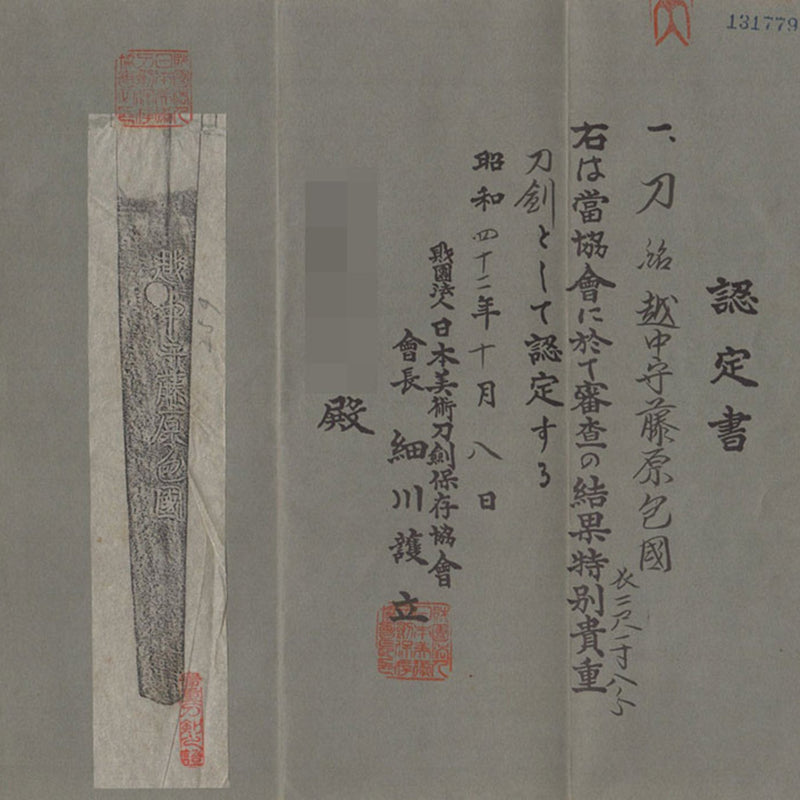 131779
認定書
一、刀 銘 越中守藤原包國
長二尺一寸八分
右は當協會に於て審査の結果特別貴重
刀劍として認定する
昭和四十二年十月八日
財團法人日本美術刀劍保存協會
會長 細川護立
殿
越中守藤原包國